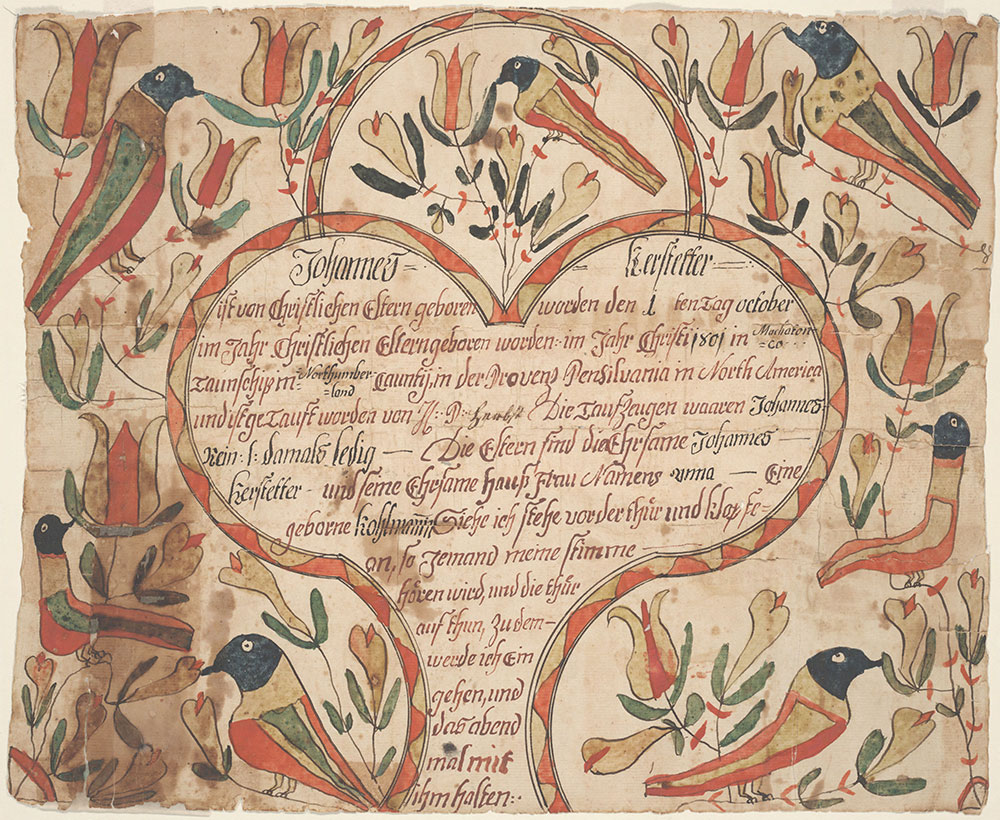 Johannes = Kerstetter =
ist von Christlichen Eltern geboren worden den 1 ten Tag october
im Jahr Christlichen Eltern geboren worden: im Jahr Christi 1801 in Machaton=
co
Taunschip in Northumber= Caunty, in der Provens Pensilvania in North America
land
und ist ge Taufft worden von H: P: Herbst Die Taufzeugen waaren Johannes
Rein :|: damals ledig — Die Eltern sind die Ehrsame Johannes —
Kerstetter - und seine Ehrsame Hauß Frau Namens anna — Eine
geborne Kohlmann Siehe ich stehe vor der thür und klopfe=
an, so Jemand meine stimme
hören wird, und die thür
auf thun, zu dem=
werde ich Ein
gehen, und
das abend
mal mit
ihm halten: